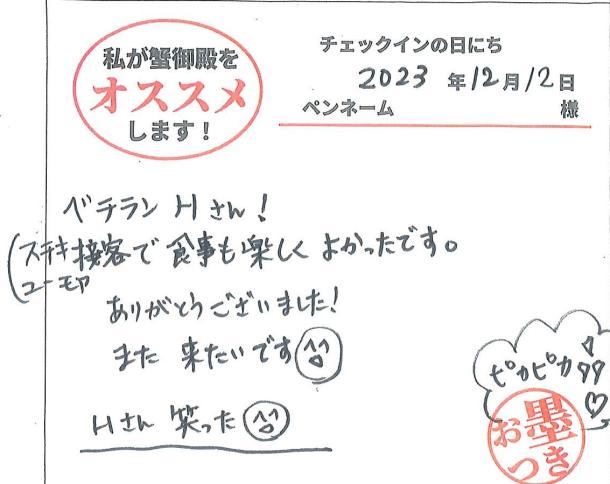 私が蟹御殿を
オススメ
します！
チェックインの日にち
2023 年12月12日
ペンネーム 様
ベテラン Hさん！
(ステキ接客で 食事も楽しく よかったです。
ユーモア
ありがとうございました！
また 来たいです
Hさん 笑った
ピカピカ
お墨
つき